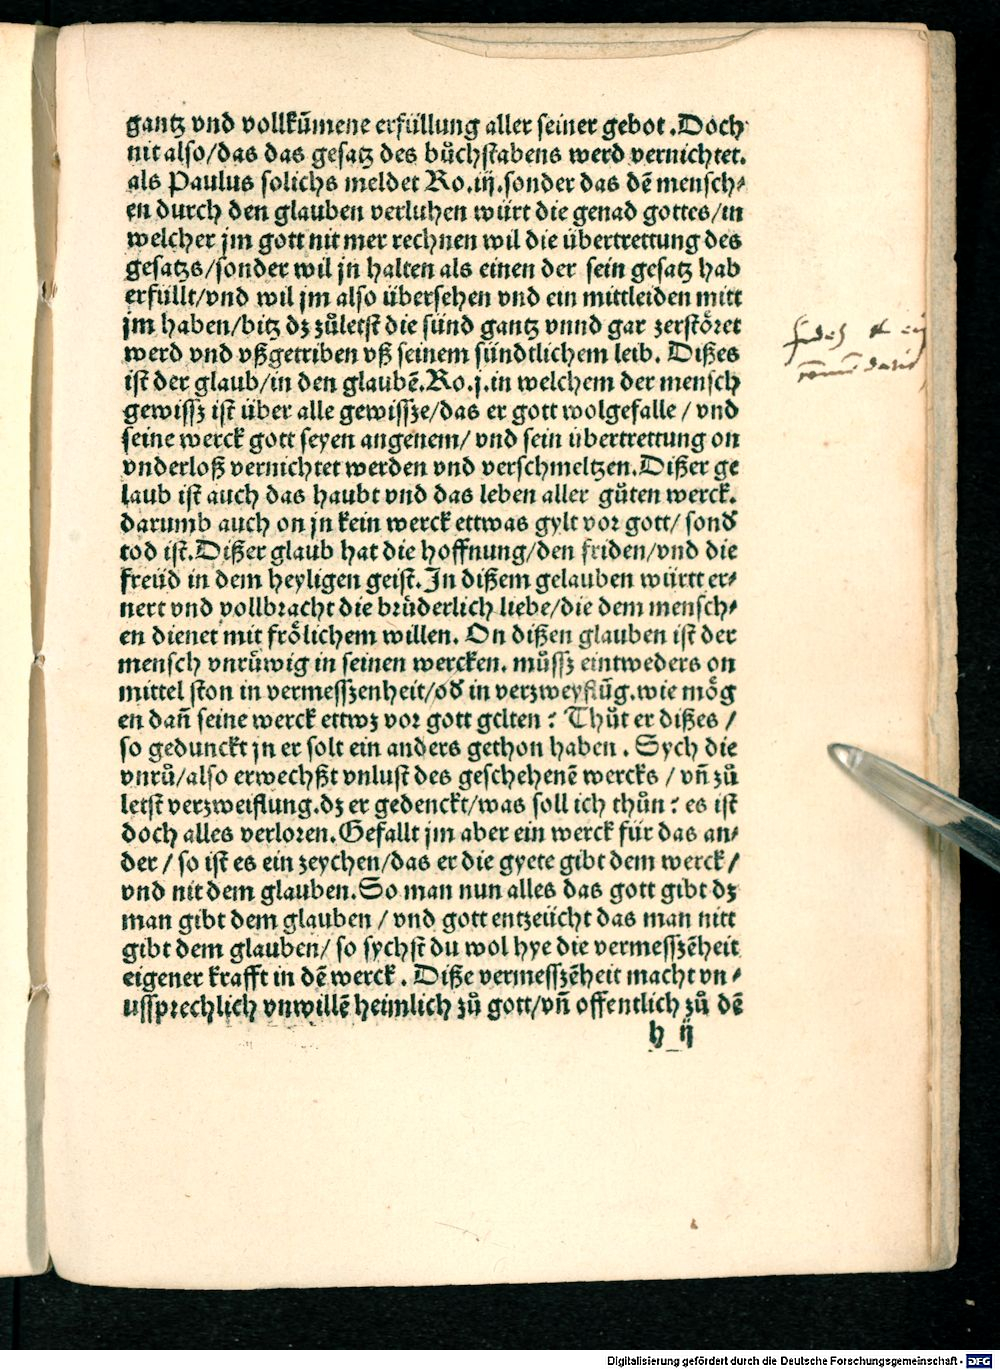 gantz vnd vollkũmene erfüllung aller seiner gebot. Doch
nit also/das das gesatz des bůchstabens werd vernichtet.
als Paulus solichs meldet Ro. iij. sonder das dẽ mensch⸗
en durch den glauben verluhen würt die genad gottes/in
welcher jm gott nit mer rechnen wil die übertrettung des
gesatzs/sonder wil jn halten als einen der sein gesatz hab
erfüllt/vnd wil jm also übersehen vnd ein mittleiden mitt
jm haben/bitz dz zůletst die sünd gantz vnnd gar zerstöret
werd vnd vßgetriben vß seinem sündtlichem leib. Dißes
ist der glaub/in den glaubẽ. Ro. j. in welchem der mensch
gewissz ist über alle gewissze/das er gott wolgefalle / vnd
seine werck gott seyen angenem/ vnd sein übertrettung on
vnderloß vernichtet werden vnd verschmeltzen. Dißer ge
laub ist auch das haubt vnd das leben aller gůten werck.
darumb auch on jn kein werck ettwas gylt vor gott/ sond̕
tod ist. Dißer glaub hat die hoffnung/den friden/vnd die
freüd in dem heyligen geist. In dißem gelauben württ er⸗
nert vnd vollbracht die brüderlich liebe/die dem mensch⸗
en dienet mit frölichem willen. On dißen glauben ist der
mensch vnrüwig in seinen wercken. můssz eintweders on
mittel ston in vermesszenheit/od̕ in verzweyflũg. wie mög
en dañ seine werck ettwz vor gott gelten? Thůt er dißes /
so gedunckt jn er solt ein anders gethon haben. Sych die
vnrů/also erwechßt vnlust des geschehenẽ wercks / vñ zů
letst verzweiflung. dz er gedenckt/was soll ich thůn? es ist
doch alles verloren. Gefallt jm aber ein werck für das an⸗
der / so ist es ein zeychen/das er die gyete gibt dem werck/
vnd nit dem glauben. So man nun alles das gott gibt dz
man gibt dem glauben / vnd gott entzeücht das man nitt
gibt dem glauben/ so sychst du wol hye die vermesszẽheit
eigener krafft in dẽ werck. Diße vermesszẽheit macht vn⸗
ussprechlich vnwillẽ heimlich zů gott/vñ offentlich zů dẽ
h ij
Digitalisierung gefördert durch die Deutsche Forschungsgemeinschaft - DFG